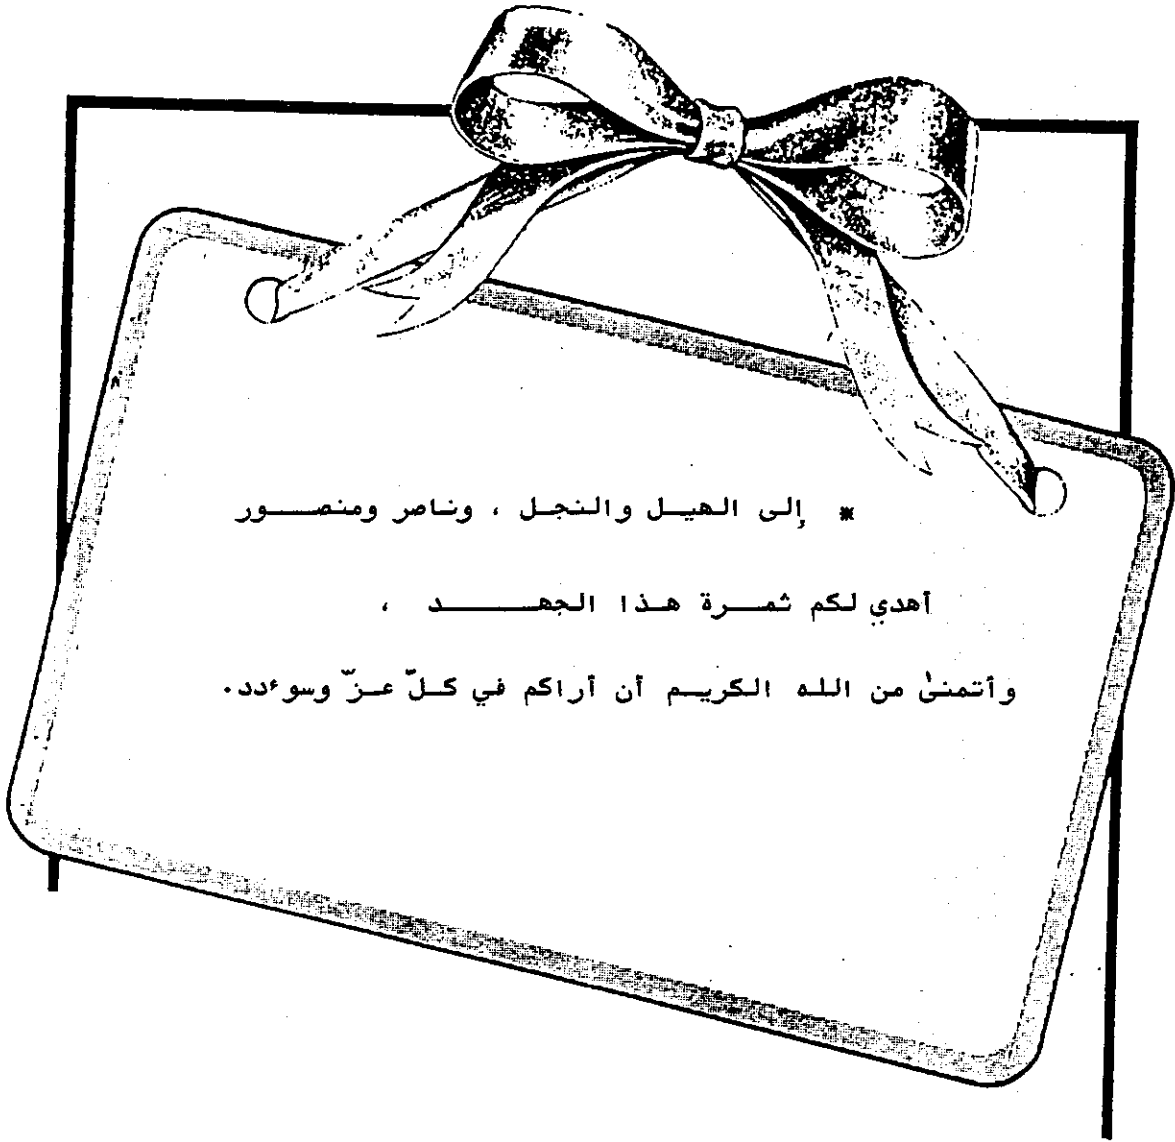 * إلى الهيل والنجل ، وناصر ومنصور
أهدي لكم ثمرة هذا الجهد ،
وأتمنىٰ من الله الكريم أن أراكم في كلّ عزّ وسوءدد.